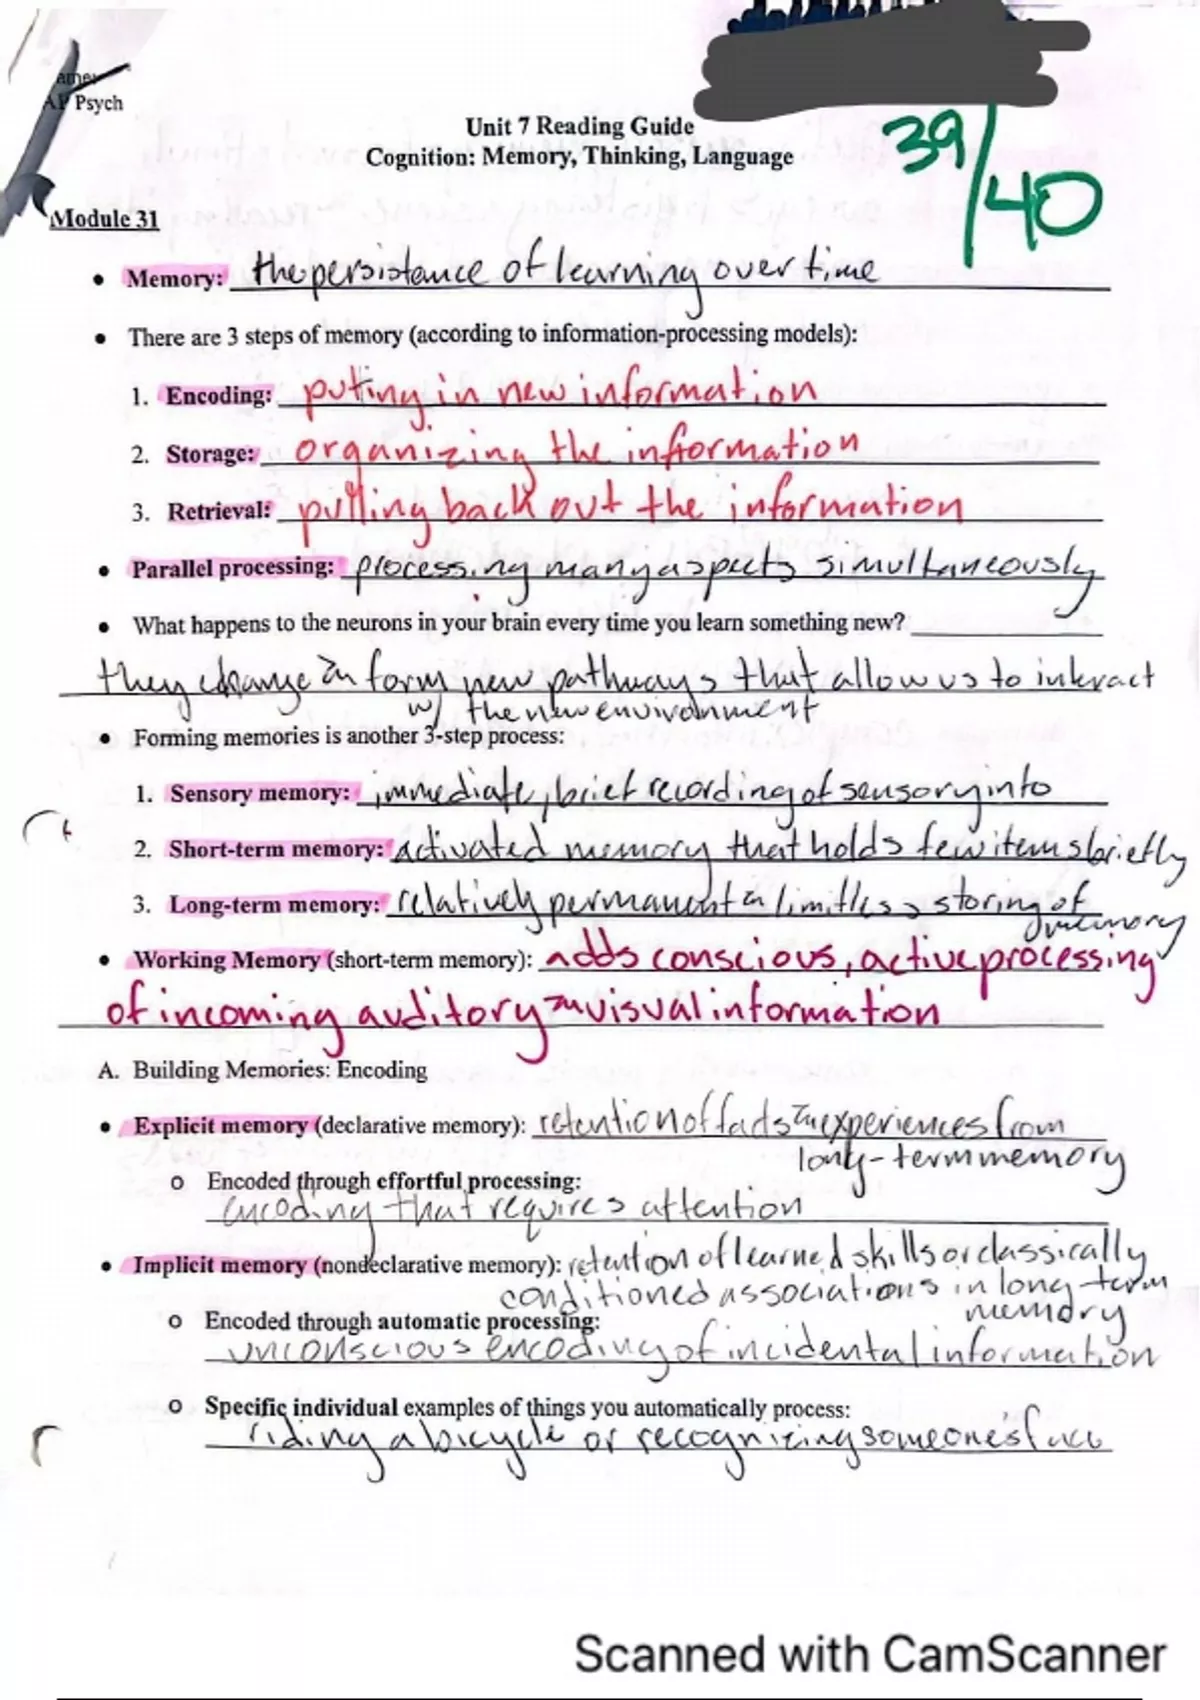 AP Psych
Unit 7 Reading Guide
Cognition: Memory, Thinking, Language
39/40
Module 31
• Memory: the persistance of learning over time
• There are 3 steps of memory (according to information-processing models):
1. Encoding: puting in new information
2. Storage: organizing the information
3. Retrieval: pulling back out the information
• Parallel processing: processing many aspects simultaneously
• What happens to the neurons in your brain every time you learn something new?
they change & form new pathways that allow us to interact
w/ the new environment
• Forming memories is another 3-step process:
1. Sensory memory: immediate, brief recording of sensory info
2. Short-term memory: activated memory that holds few items briefly
3. Long-term memory: relatively permanent & limitless storing of
memory
• Working Memory (short-term memory): adds conscious, active processing
of incoming auditory & visual information
A. Building Memories: Encoding
• Explicit memory (declarative memory): retention of facts & experiences from
long-term memory
o Encoded through effortful processing:
encoding that requires attention
• Implicit memory (nondeclarative memory): retention of learned skills or classically
conditioned associations in long-term
memory
o Encoded through automatic processing:
unconscious encoding of incidental information
o Specific individual examples of things you automatically process:
riding a bicycle or recognizing someones face
Scanned with CamScanner